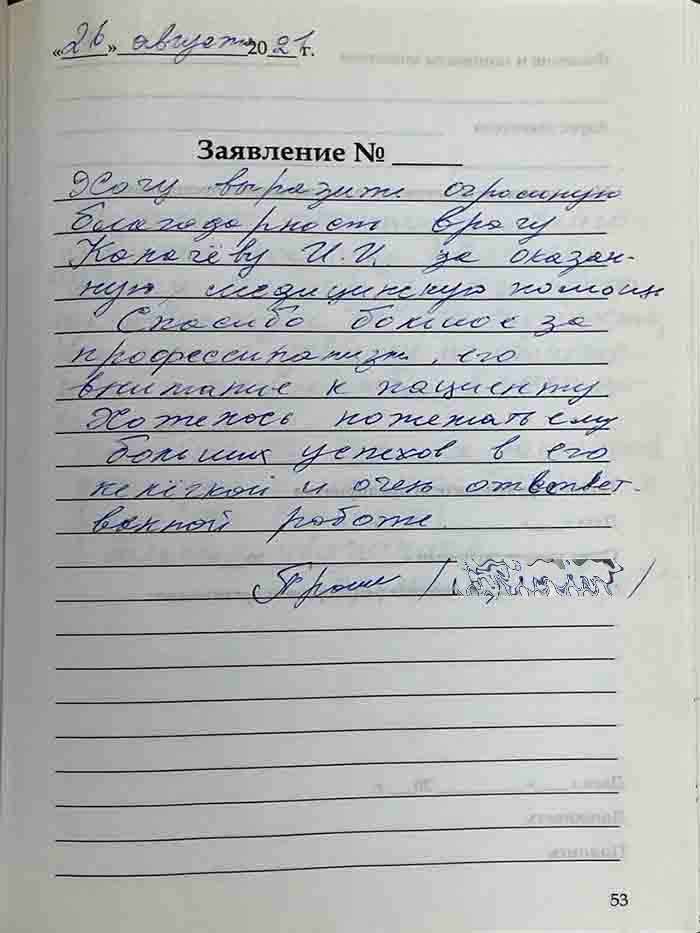 «26» августа 2021 г.
Заявление №
Хочу выразить огромную
благодарность врачу
Капачёву И.И. за оказан-
ную медицинскую помощь
Спасибо большое за
профессионализм, его
внимание к пациенту
Хотелось пожелать ему
больших успехов в его
нелёгкой и очень ответст-
венной работе.
53